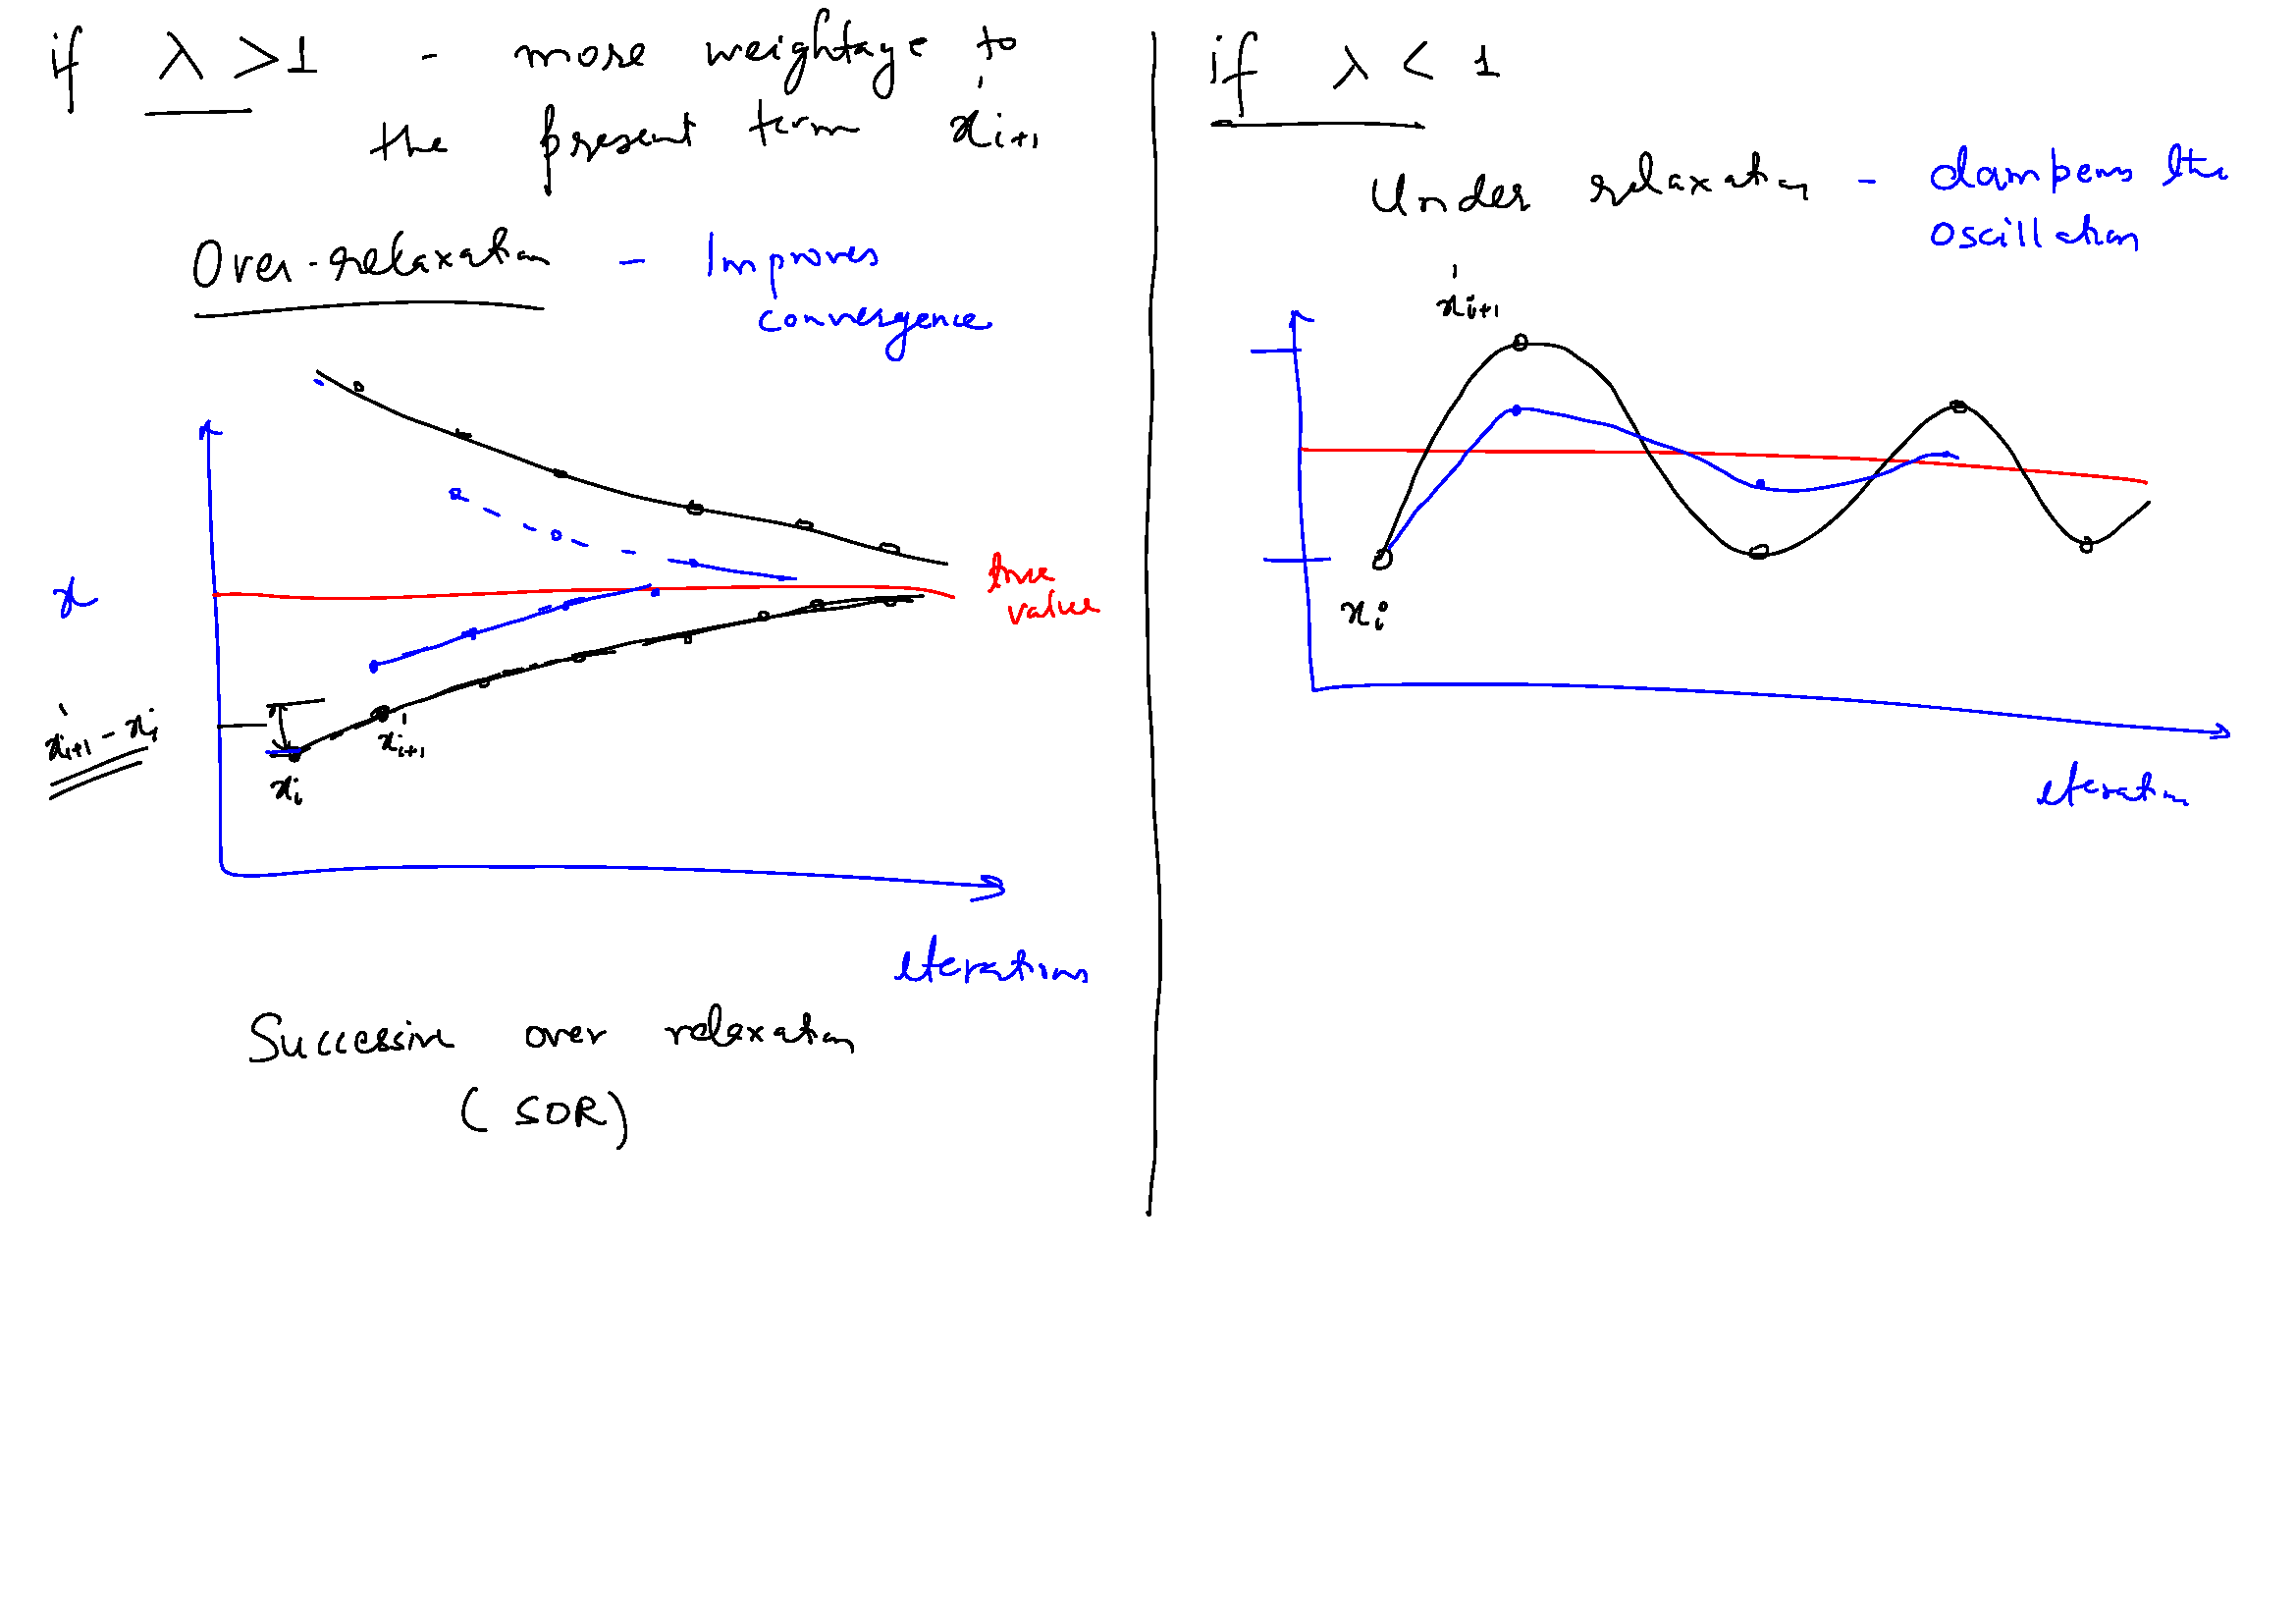 if λ > 1 - more weightage to
the present term x'i+1
Over-relaxation - Improves
convergence
x
true
value
x'i+1 - xi
x'i+1
xi
iterations
Successive over relaxation
(SOR)
if λ < 1
Under relaxation - dampens the
oscillation
x'i+1
xi
iteration